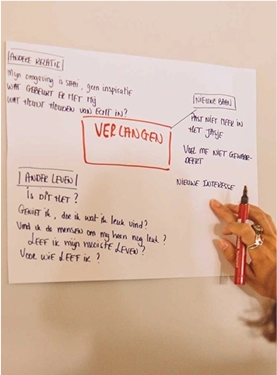 ANDERE RELATIE
Mijn omgeving is saai, geen inspiratie
WAT GEBEURT ER MET MIJ
WAT HOUDT HOUDEN VAN ECHT IN?
VERLANGEN
NIEUWE BAAN
PAST NIET MEER IN
HET JASJE
VOEL ME NIET GEWAAR-
DEERT
NIEUWE INTERESSE
ANDER LEVEN
IS DIT HET?
GENIET ik, doe ik wat ik leuk vind?
Vind ik de mensen om mij heen nog leuk?
LEEF ik mijn mooiste LEVEN?
VOOR WIE LEEF ik?